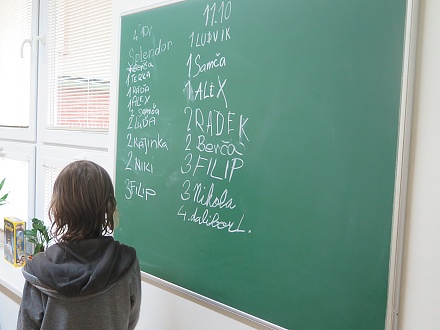 Splendor
Berča
1 TERKA
1 RADIA
1 ALEX
1 Samča
2 LUĎA
2 KAJINKA
2 NIKI
3 FILIP
11.10
1 LUĎVIK
1 Samča
1 ALEX
2 RADEK
2 Berča
3 FILIP
3 Nikola
4. dalibor L.